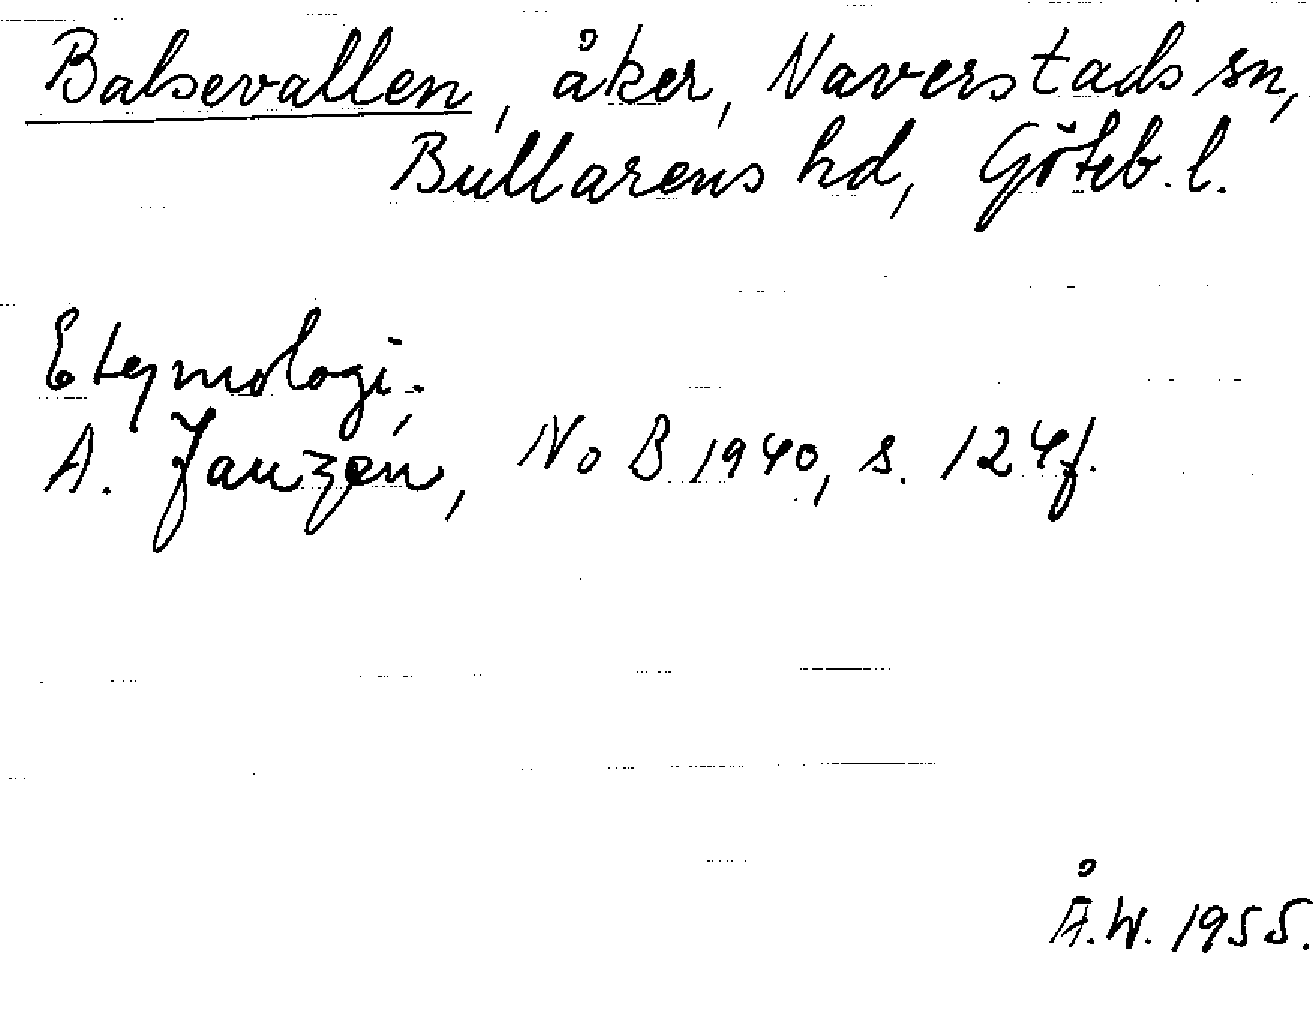 Balsevallen, åker, Naverstads sn,
Bullarens hd, Göteb. l.
Etymologi.
A. Janzén, NoB 1940, s. 124f.
Å.W. 1955.